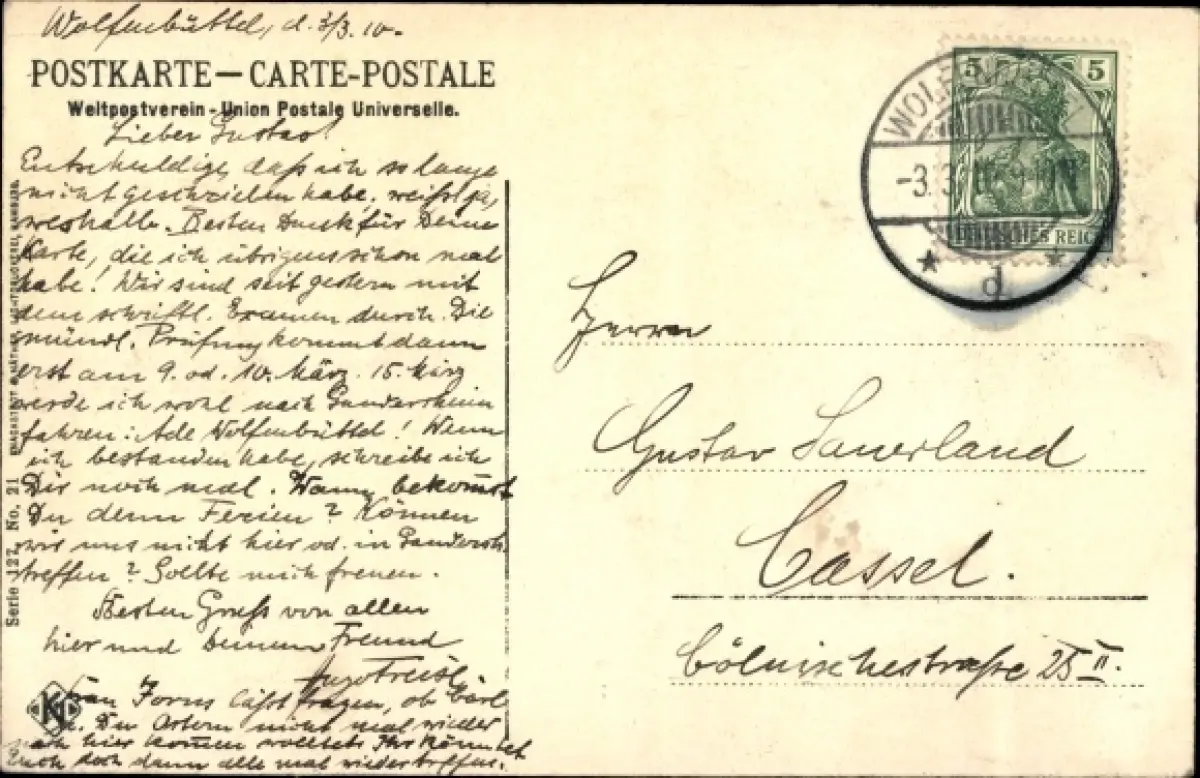 Wolfenbüttel, d. 3/3. 10.
POSTKARTE — CARTE-POSTALE
Weltpostverein - Union Postale Universelle.
Lieber Gustav!
Entschuldige, daß ich so lange
nicht geschrieben habe, weißt ja,
weshalb. Besten Dank für Deine
Karte, die ich übrigens schon mal
habe! Wir sind seit gestern mit
dem schriftl. Examen durch. Die
mündl. Prüfung kommt dann
erst am 9. od. 10. März. 15. März
werde ich wohl nach Gandersheim
fahren: Ade Wolfenbüttel! Wenn
ich bestanden habe, schreibe ich
Dir noch mal. Wann bekommst
Du denn Ferien? Können
wir uns nicht hier od. in Gandersh.
treffen? Sollte mich freuen.
Besten Gruß von allen
hier und Deinem Freund
läßt fragen, ob
u. Du Ostern nicht mal wieder
nach hier kommen wolltet. Ihr könntet
Euch doch dann alle mal wiedertreffen.
Serie 127. No. 21
5 5
DEUTSCHES REICH
WOLFENBÜTTEL
-3.3.10. 9-10
* d *
Herrn
Gustav Sauerland
Cassel.
Cölnischestraße 25 II.